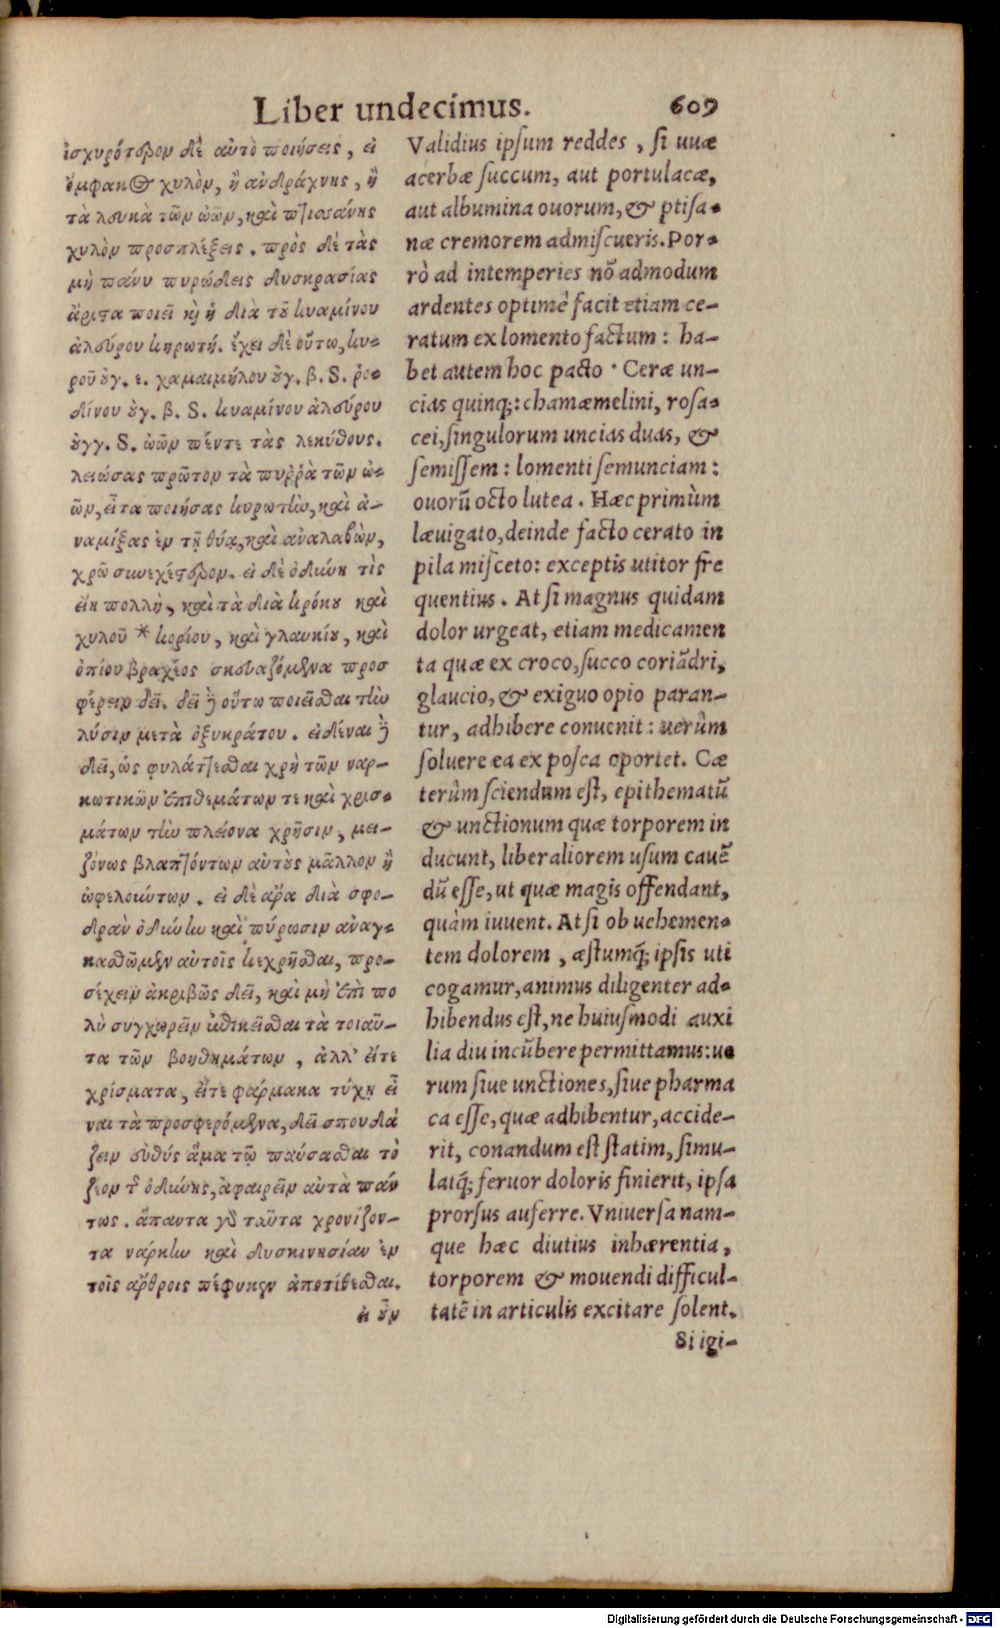 Liber undecimus. 609
ἰσχυρότερον δὲ αὐτὸ ποιήσεις, εἰ
ὄμφακος χυλὸν, ἢ ἀνδράχνης, ἢ
τὰ λευκὰ τῶν ὠῶν, καὶ πτισάνης
χυλὸν προσπλέξεις. πρὸς δὲ τὰς
μὴ πάνυ πυρώδεις δυσκρασίας
ἄριστα ποιεῖ καὶ ἡ διὰ τοῦ κυαμίνου
ἀλεύρου κηρωτή. ἔχει δὲ οὕτω, κη-
ροῦ ουγ. ε. χαμαιμήλου ουγ. β. S. ῥο-
δίνου ουγ. β. S. κυαμίνου ἀλεύρου
ουγγ. S. ὠῶν πέντε τὰς λεκύθους.
λειώσας πρῶτον τὰ πυῤῥὰ τῶν ὠ-
ῶν, εἶτα ποιήσας κυρωτὴν, καὶ ἀ-
ναμίξας ἐν τῇ θύᾳ, καὶ ἀναλαβὼν,
χρῶ συνεχέστερον. εἰ δὲ ὀδύνη τὶς
εἴη πολλὴ, καὶ τὰ διὰ κρόκου καὶ
χυλοῦ * κορίου, καὶ γλαυκίου, καὶ
ὀπίου βραχέος σκευαζόμενα προσ
φέρειν δεῖ. δεῖ δὲ οὕτω ποιεῖσθαι τὴν
λύσιν μετὰ ὀξυκράτου. εἰδέναι δὲ
δεῖ, ὡς φυλάττεσθαι χρὴ τῶν ναρ-
κωτικῶν ἐπιθεμάτων τε καὶ χρισ-
μάτων τὴν πλείονα χρῆσιν, μει-
ζόνως βλαπτόντων αὐτοὺς μᾶλλον ἢ
ὠφελούντων. εἰ δὲ ἄρα διὰ σφο-
δρὰν ὀδύνην καὶ πύρωσιν ἀναγ-
κασθῶμεν αὐτοῖς κεχρῆσθαι, προ-
σέχειν ἀκριβῶς δεῖ, καὶ μὴ ἐπὶ πο
λὺ συγχωρεῖν ἐπικεῖσθαι τὰ τοιαῦ-
τα τῶν βοηθημάτων, ἀλλ' εἴτε
χρίσματα, εἴτε φάρμακα τύχῃ εἶ
ναι τὰ προσφερόμενα, δεῖ σπουδά
ζειν εὐθύς ἅμα τῷ παύσασθαι τὸ
ζέον τῆς ὀδύνης, ἀφαιρεῖν αὐτὰ πάν
τως. ἅπαντα γὰρ ταῦτα χρονίζον-
τα νάρκην καὶ δυσκινησίαν ἐν
τοῖς ἄρθροις πέφυκεν ἀποτίθεσθαι.
εἰ οὖν
Validius ipsum reddes, si uuæ
acerbæ succum, aut portulacæ,
aut albumina ouorum, & ptisa-
næ cremorem admiscueris. Por-
rò ad intemperies nõ admodum
ardentes optimè facit etiam ce-
ratum ex lomento factum: ha-
bet autem hoc pacto. Ceræ un-
cias quinq;: chamæmelini, rosa-
cei, singulorum uncias duas, &
semissem: lomenti semunciam:
ouorũ octo lutea. Hæc primùm
læuigato, deinde facto cerato in
pila misceto: exceptis utitor fre
quentius. At si magnus quidam
dolor urgeat, etiam medicamen
ta quæ ex croco, succo coriãdri,
glaucio, & exiguo opio paran-
tur, adhibere conuenit: uerùm
soluere ea ex posca oportet. Cæ
terùm sciendum est, epithematũ
& unctionum quæ torporem in
ducunt, liberaliorem usum cauẽ
dũ esse, ut quæ magis offendant,
quàm iuuent. At si ob uehemen-
tem dolorem, æstumq́; ipsis uti
cogamur, animus diligenter ad-
hibendus est, ne huiusmodi auxi
lia diu incũbere permittamus: ue
rum siue unctiones, siue pharma
ca esse, quæ adhibentur, accide-
rit, conandum est statim, simu-
latq́; feruor doloris finierit, ipsa
prorsus auferre. Vniuersa nam-
que hæc diutius inhærentia,
torporem & mouendi difficul-
tatẽ in articulis excitare solent.
Si igi-
Digitalisierung gefördert durch die Deutsche Forschungsgemeinschaft - DFG